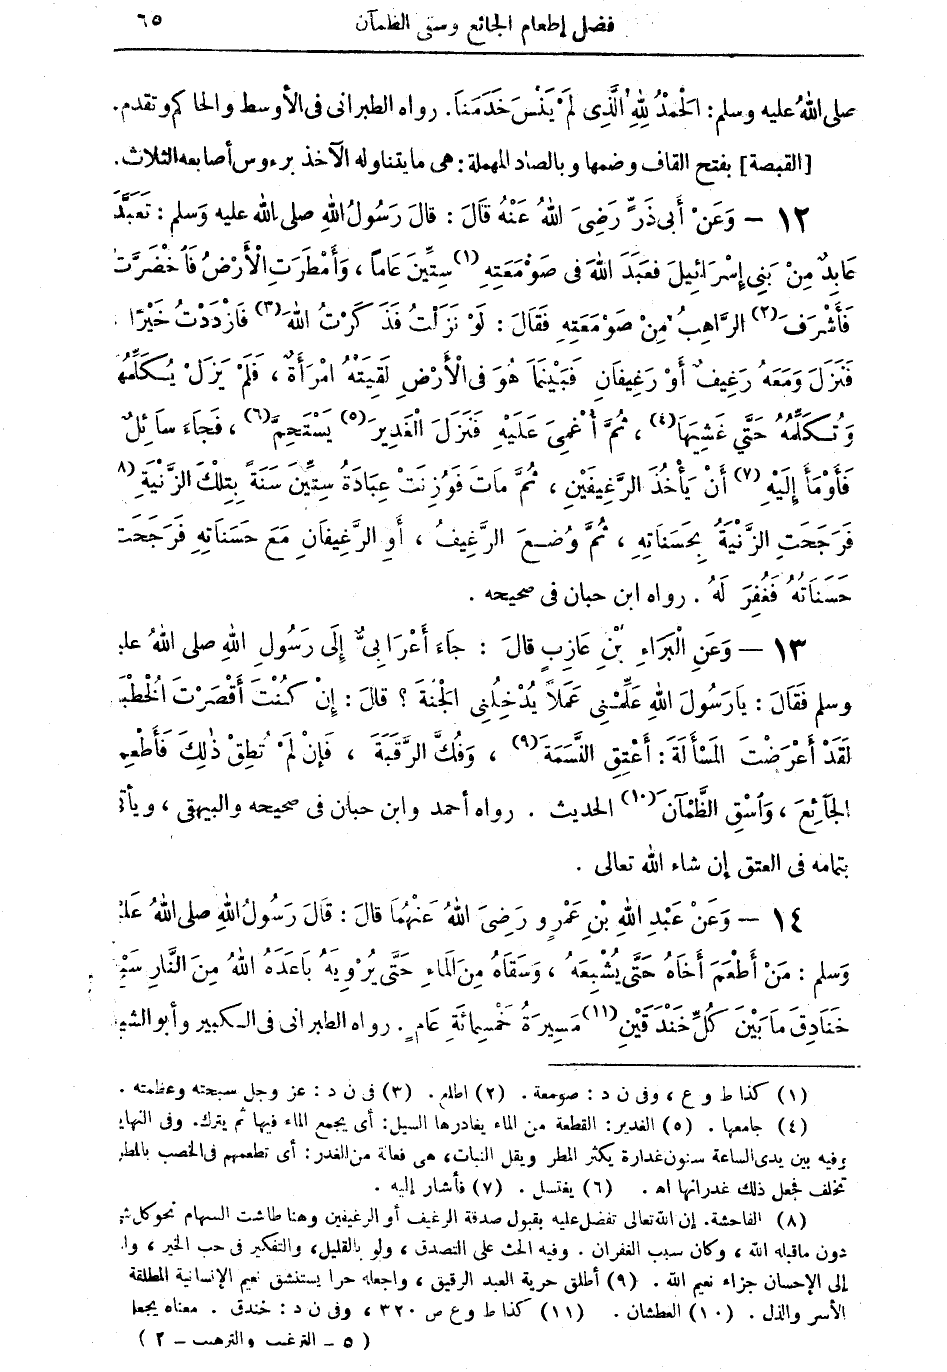 فضل إطعام الجائع وسقى الظمآن ٦٥
صلى اللهُ عليه وسلم: الْحَمْدُ لِلهِ الَّذِى لَمْ يَنْسَ خَدَمَنَا. رواه الطبرانى فى الأوسط والحاكم وتقدم.
[القبصة] بفتح القاف وضمها وبالصاد المهملة: هى ما يتناوله الآخذ برءوس أصابعه الثلاث.
١٢ — وَعَنْ أَبِى ذَرٍّ رَضِىَ اللهُ عَنْهُ قَالَ: قالَ رَسُولُ اللهِ صلى الله عليه وَسلم: تَعَبَّدَ
عَابِدٌ مِنْ بَنِى إِسْرَائِيلَ فَعَبَدَ اللهَ فى صَوْمَعَتِهِ (١) سِتِّينَ عَاماً، وَأَمْطَرَتِ الْأَرْضُ فَاخْضَرَّت
فَأَشْرَفَ (٢) الرَّاهِبُ مِنْ صَوْمَعَتِهِ فَقَالَ: لَوْ نَزَلْتُ فَذَكَرْتُ اللهَ (٣) فَازْدَدْتُ خَيْرًا.
فَنَزَلَ وَمَعَهُ رَغِيفٌ أَوْ رَغِيفَانِ فَبَيْنَمَا هُوَ فى الْأَرْضِ لَقِيَتْهُ امْرَأَةٌ، فَلَمْ يَزَلْ يُكَلِّمُهَ
وَتُكَلِّمُهُ حَتَّى غَشِيَهَا (٤)، ثُمَّ أُغْمِىَ عَلَيْهِ فَنَزَلَ الْغَدِيرَ (٥) يَسْتَحِمُّ (٦)، فَجَاءَ سَائِلٌ
فَأَوْمَأَ إِلَيْهِ (٧) أَنْ يَأْخُذَ الرَّغِيفَيْنِ، ثُمَّ مَاتَ فَوُزِنَتْ عِبَادَةُ سِتِّينَ سَنَةً بِتِلْكَ الزَّنْيَةِ (٨
فَرَجَحَتِ الزَّنْيَةُ بِحَسَنَاتِهِ، ثُمَّ وُضِعَ الرَّغِيفُ، أَوِ الرَّغِيفَانِ مَعَ حَسَنَاتِهِ فَرَجَحَتْ
حَسَنَاتُهُ فَغُفِرَ لَهُ. رواه ابن حبان فى صحيحه.
١٣ — وَعَنِ الْبَرَاءِ بْنِ عَازِبٍ قالَ: جَاءَ أَعْرَابِىٌّ إِلَى رَسُولِ اللهِ صلى اللهُ عليـ
وسلم فَقَالَ: يَارَسُولَ اللهِ عَلِّمْنِى عَمَلاً يُدْخِلُنِى الْجَنةَ؟ قالَ: إِنْ كُنْتَ أَقْصَرْتَ الْخُطْبَـ
لَقَدْ أَعْرَضْتَ الْمَسْأَلَةَ: أَعْتِقِ النَّسَمَةَ (٩)، وَفُكَّ الرَّقَبَةَ، فَإِنْ لَمْ تُطِقْ ذٰلِكَ فَأَطْعِمِ
الْجَائِعَ، وَاسْقِ الظَّمْآنَ (١٠) الحديث. رواه أحمد وابن حبان فى صحيحه والبيهقى، ويأتـ
بتمامه فى العتق إن شاء الله تعالى.
١٤ — وَعَنْ عَبْدِ اللهِ بْنِ عَمْرٍو رَضِىَ اللهُ عَنْهُمَا قالَ: قَالَ رَسُولُ اللهِ صلى اللهُ عَلَيْـ
وَسلم: مَنْ أَطْعَمَ أَخَاهُ حَتَّى يُشْبِعَهُ، وَسَقَاهُ مِنَ الْمَاءِ حَتَّى يُرْوِيَهُ بَاعَدَهُ اللهُ مِنَ النَّارِ سَبْـ
خَنَادِقَ مَا بَيْنَ كُلِّ خَنْدَقَيْنِ (١١) مَسِيرَةُ خَمْسِمِائَةِ عَامٍ. رواه الطبرانى فى الكبير وأبو الشيـ
(١) كذا ط و ع، وفى ن د: صومعة. (٢) اطلع. (٣) فى ن د: عز وجل سبحته وعظمته.
(٤) جامعها. (٥) الغدير: القطعة من الماء يغادرها السيل: أى يجمع الماء فيها ثم يترك. وفى النهايـ
وفيه بين يدى الساعة سنون غدارة يكثر المطر ويقل النبات، هى فعالة من الغدر: أى تطعمهم فى الخصب بالمطر
تخلف فجعل ذلك غدرانها اه. (٦) يغتسل. (٧) فأشار إليه.
(٨) الفاحشة. إن الله تعالى تفضل عليه بقبول صدقة الرغيف أو الرغيفين وهنا طاشت السهام نحو كل شـ
دون ما قبله الله، وكان سبب الغفران. وفيه الحث على التصدق، ولو بالقليل، والتفكير فى حب الخير، وا
إلى الإحسان جزاء نعيم الله. (٩) أطلق حرية العبد الرقيق، واجعله حرا يستنشق نعيم الإنسانية المطلقة
الأسر والذل. (١٠) العطشان. (١١) كذا ط و ع ص ٣٢٠، وفى ن د: خندق. معناه يجعل
(٥ — الترغيب والترهيب — ٢)